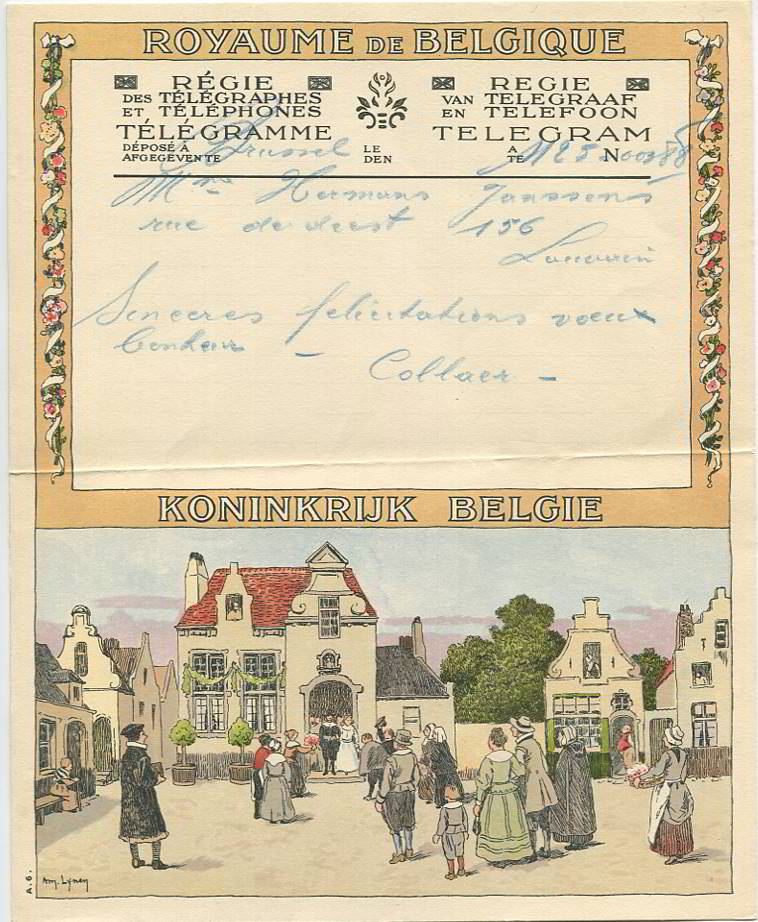 ROYAUME DE BELGIQUE
RÉGIE
DES TÉLÉGRAPHES
ET TÉLÉPHONES
TÉLÉGRAMME
DÉPOSÉ À
AFGEGEVEN TE
Brussel
LE
DEN
REGIE
VAN TELEGRAAF
EN TELEFOON
TELEGRAM
A
TE
No
Mme Hermans Janssens
rue de diest 156
Louvain
Sinceres felicitations voeux
bonheur –
Collaer –
KONINKRIJK BELGIE
A.6.
Am. Lynen